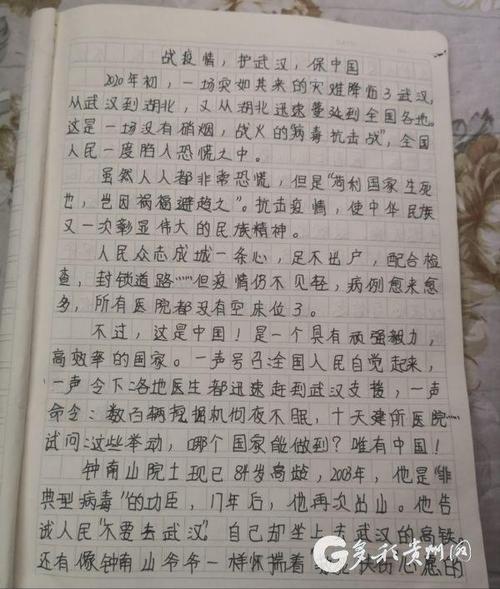 战疫情，护武汉，保中国
2020年初，一场突如其来的灾难降临了武汉，
从武汉到湖北，又从湖北迅速蔓延到全国各地。
这是一场没有硝烟，战火的"病毒抗击战"，全国
人民一度陷入恐慌之中。
虽然人人都非常恐慌，但是"苟利国家生死
也，岂因祸福避趋之"。抗击疫情，使中华民族
又一次彰显伟大的民族精神。
人民众志成城一条心，足不出户，配合检
查，封锁道路……但疫情仍不见轻，病例愈来愈
多，所有医院都没有空床位了。
不过，这是中国！是一个具有顽强毅力，
高效率的国家。一声号召：全国人民自觉起来，
一声令下：各地医生都迅速赶到武汉支援，一声
命令：数百辆挖掘机彻夜不眠，十天建所医院……
试问：这些举动，哪个国家能做到？唯有中国！
钟南山院士现已84岁高龄，2003年，他是"非
典型病毒"的功臣，17年后，他再次出山。他告
诫人民"不要去武汉"，自己却坐上去武汉的高铁。
还有像钟南山爷爷一样怀揣着救死扶伤心愿的
多彩贵州网